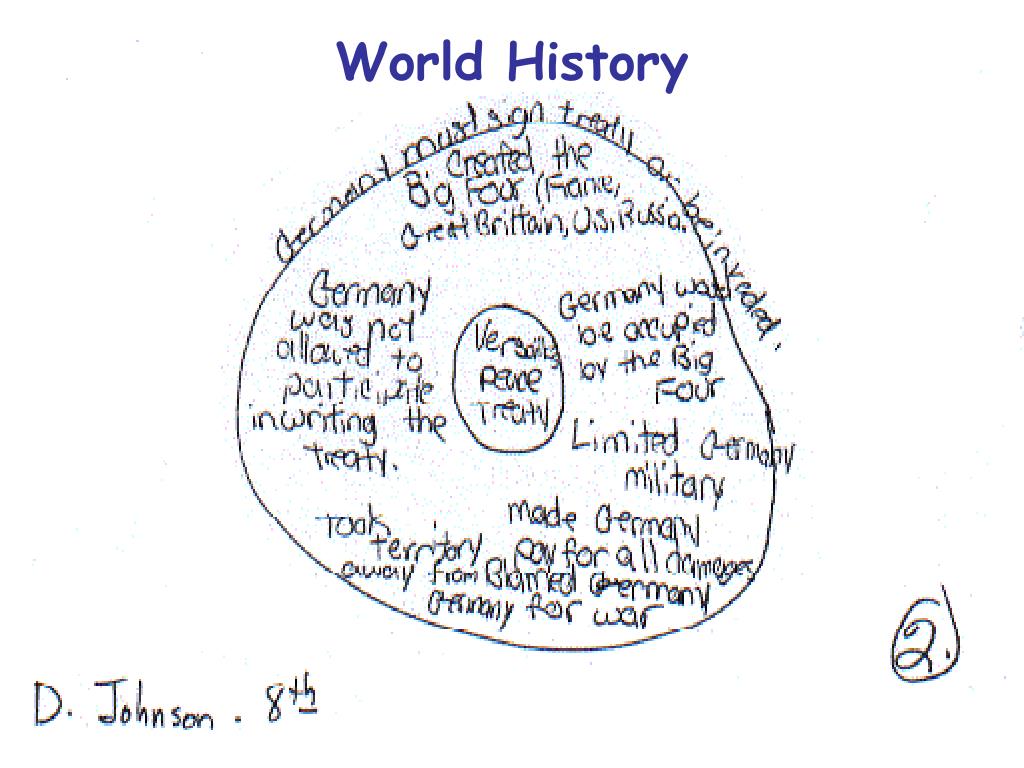 World History
Germany must sign treaty or be invaded.
Created the
Big Four (France,
Great Brittain, U.S, Russia.
Germany
was not
allowed to
participate
in writing the
treaty.
Versailles
Peace
Treaty
Germany was
be occupied
by the Big
Four
Limited Germany
military
Took
territory
away from
Germany
made Germany
pay for all damages
Blamed Germany
for war
2.
D. Johnson. 8th